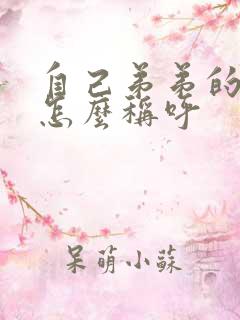 自己弟弟的
怎麼稱呼
呆萌小蘇